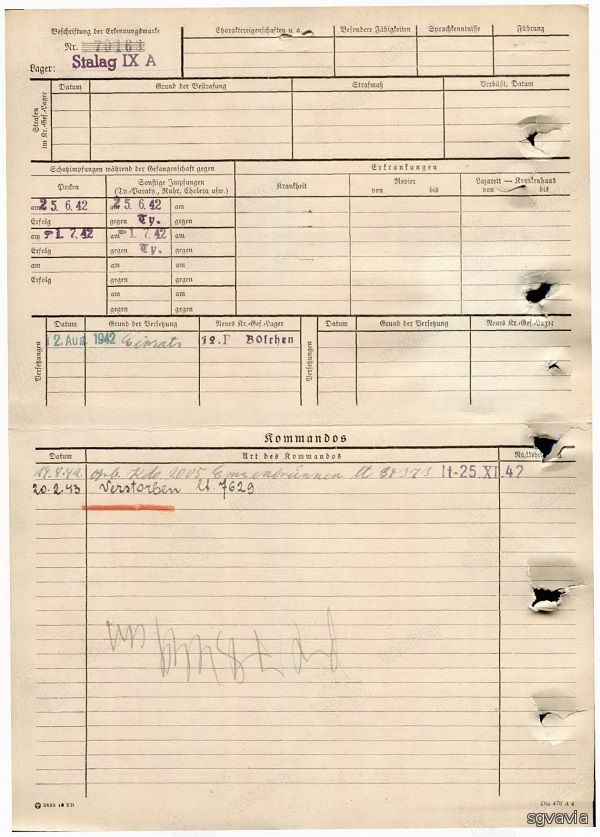 Beschriftung der Erkennungsmarke
Nr. 70161
Lager: Stalag IX A
Charaktereigenschaften u. a.
Besondere Fähigkeiten
Sprachkenntnisse
Führung
Strafen im Kr.-Gef.-Lager
Datum
Grund der Bestrafung
Strafmaß
Verbüßt, Datum
Schutzimpfungen während der Gefangenschaft gegen
Erkrankungen
Pocken
Sonstige Impfungen
(Ty.-Paraty., Ruhr, Cholera usw.)
Krankheit
Revier
von bis
Lazarett — Krankenhaus
von bis
am 25.6.42 am 25.6.42 am
Erfolg gegen Ty. gegen
am -1.7.42 am -1.7.42 am
Erfolg gegen Ty. gegen
am am am
Erfolg gegen gegen
am am
gegen gegen
Versetzungen
Datum
Grund der Versetzung
Neues Kr.-Gef.-Lager
Versetzungen
Datum
Grund der Versetzung
Neues Kr.-Gef.-Lager
12. Aug. 1942 Einsatz 12.F Bolchen
Kommandos
Datum
Art des Kommandos
Arb. Kdo 2005 lt-25.XI.42
20.2.43 Verstorben lt. 7629
Din 476 A 4
sgvavia